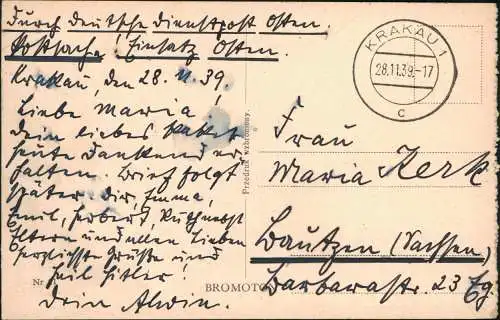 Durch deutsche Dienstpost Osten.
Postsache! Einsatz Osten.
Krakau, den 28.11.39.
Liebe Maria!
Dein liebes Paket
heute dankend er-
halten. Brief folgt
später. Dir, Emma,
Emil, Herbert, Ruth nebst
Eltern und allen Lieben
herzlichste Grüße und
Heil Hitler!
Dein Alwin.
Nr
BROMOTO
Przedruk wzbroniony.
KRAKAU 1
28.11.39.-17
c
Frau
Maria Kerk
Bautzen (Sachsen)
Barbarastr. 23 Eg.